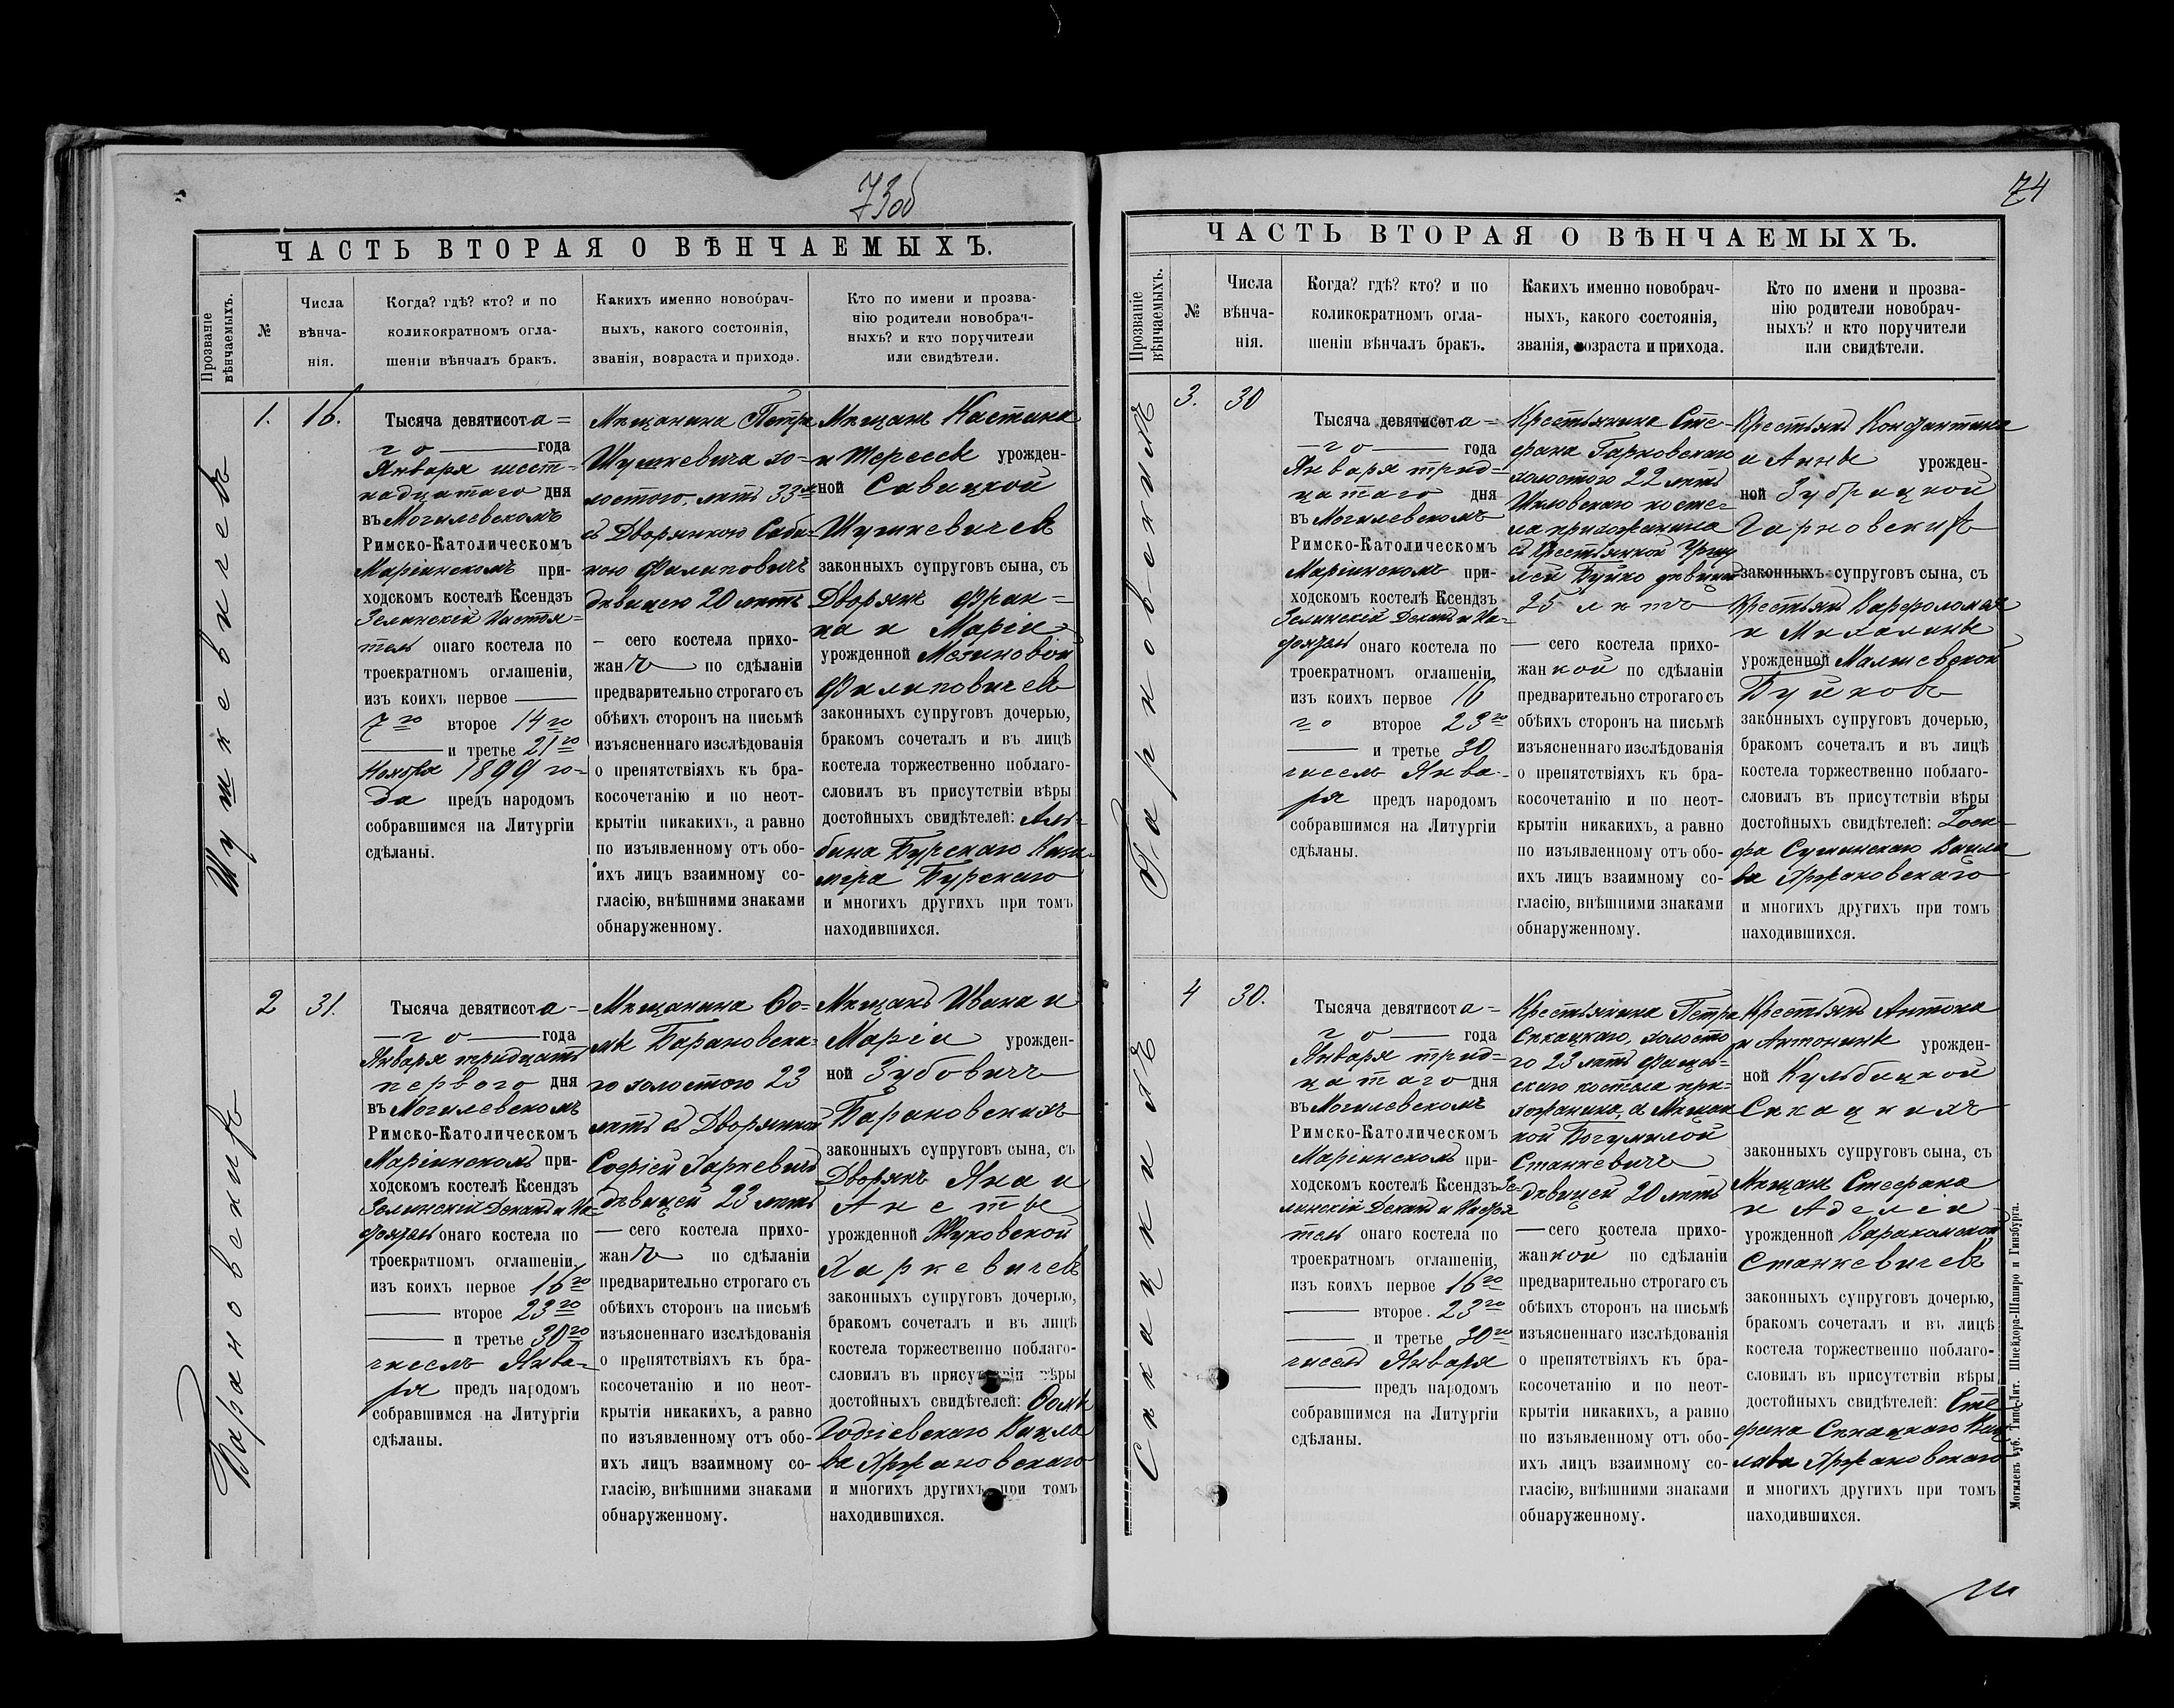 73об
ЧАСТЬ ВТОРАЯ О ВѢНЧАЕМЫХЪ.
Прозваніе
вѣнчаемыхъ.
№
Числа
вѣнча-
нія.
Когда? гдѣ? кто? и по
коликократномъ огла-
шеніи вѣнчалъ бракъ.
Какихъ именно новобрач-
ныхъ, какого состоянія,
званія, возраста и прихода.
Кто по имени и прозва-
нію родители новобрач-
ныхъ? и кто поручители
или свидѣтели.
Шушкевичевъ
1.
16.
Тысяча девятисота=
го года
Января шест-
надцатаго дня
въ Могилевскомъ
Римско-Католическомъ
Маріинскомъ при-
ходскомъ костелѣ Ксендзъ
Зелинскій Настоя=
тель онаго костела по
троекратномъ оглашеніи,
изъ коихъ первое
7го второе 14го
и третье 21го
Ноября 1899 го-
да предъ народомъ
собравшимся на Литургіи
сдѣланы.
Мѣщанина Петра
Шушкевича хо-
лостого, лѣтъ 33
съ Дворянкою Саби-
ною Филиповичъ
дѣвицею 20 лѣтъ
— сего костела прихо-
жанъ по сдѣланіи
предварительно строгаго съ
обѣихъ сторонъ на письмѣ
изъясненнаго изслѣдованія
о препятствіяхъ къ бра-
косочетанію и по неот-
крытіи никакихъ, а равно
по изъявленному отъ обо-
ихъ лицъ взаимному со-
гласію, внѣшними знаками
обнаруженному.
Мѣщанъ Кастана
и Терессы урожден-
ной Савицкой
Шушкевичевъ
законныхъ супруговъ сына, съ
Дворянъ Фран=
ца и Маріи
урожденной
Филиповичевъ
законныхъ супруговъ дочерью,
бракомъ сочеталъ и въ лицѣ
костела торжественно поблаго-
словилъ въ присутствіи вѣры
достойныхъ свидѣтелей: Аль-
бина Бурскаго Кази-
мера Бурскаго
и многихъ другихъ при томъ
находившихся.
Барановскихъ
2
31.
Тысяча девятисота-
го года
Января тридцать
перваго дня
въ Могилевскомъ
Римско-Католическомъ
Маріинскомъ при-
ходскомъ костелѣ Ксендзъ
Зелинскій Деканъ и На-
стоятель онаго костела по
троекратномъ оглашеніи,
изъ коихъ первое 16го
второе 23го
и третье 30го
чиселъ Янва-
ря предъ народомъ
собравшимся на Литургіи
сдѣланы.
Мѣщанина Ѳо-
мы Барановска-
го холостого 23
лѣтъ съ Дворянкой
Софіей Харкевичъ
дѣвицей 23 лѣтъ
— сего костела прихо-
жанъ по сдѣланіи
предварительно строгаго съ
обѣихъ сторонъ на письмѣ
изъясненнаго изслѣдованія
о препятствіяхъ къ бра-
косочетанію и по неот-
крытіи никакихъ, а равно
по изъявленному отъ обо-
ихъ лицъ взаимному со-
гласію, внѣшними знаками
обнаруженному.
Мѣщанъ Ивана и
Маріи урожден-
ной Зубовичъ
Барановскихъ
законныхъ супруговъ сына, съ
Дворянъ Яна и
Анеты
урожденной Жуковской
Харкевичевъ
законныхъ супруговъ дочерью,
бракомъ сочеталъ и въ лицѣ
костела торжественно поблаго-
словилъ въ присутствіи вѣры
достойныхъ свидѣтелей: Ѳомы
Годзіевскаго Вацла
ва Хржановскаго
и многихъ другихъ при томъ
находившихся.
74
ЧАСТЬ ВТОРАЯ О ВѢНЧАЕМЫХЪ.
Прозваніе
вѣнчаемыхъ.
№
Числа
вѣнча-
нія.
Когда? гдѣ? кто? и по
коликократномъ огла-
шеніи вѣнчалъ бракъ.
Какихъ именно новобрач-
ныхъ, какого состоянія,
званія, возраста и прихода.
Кто по имени и прозва-
нію родители новобрач-
ныхъ? и кто поручители
или свидѣтели.
Гарновскихъ
3.
30
Тысяча девятисота=
-го года
Января трид=
цатаго дня
въ Могилевскомъ
Римско-Католическомъ
Маріинскомъ при-
ходскомъ костелѣ Ксендзъ
Зелинскій Деканъ и На-
стоятель онаго костела по
троекратномъ оглашеніи,
изъ коихъ первое 16
го второе 23го
и третье 30
чиселъ Янва-
ря предъ народомъ
собравшимся на Литургіи
сдѣланы.
Крестьянина Сте-
фана Гарновскаго
холостого 22 лѣтъ
Шкловскаго косте-
ла прихожанина
съ Крестьянкой Уршу
лей Буйко дѣвицей
25 лѣтъ
— сего костела прихо-
жанкой по сдѣланіи
предварительно строгаго съ
обѣихъ сторонъ на письмѣ
изъясненнаго изслѣдованія
о препятствіяхъ къ бра-
косочетанію и по неот-
крытіи никакихъ, а равно
по изъявленному отъ обо-
ихъ лицъ взаимному со-
гласію, внѣшними знаками
обнаруженному.
Крестьянъ Константина
и Анны урожден-
ной Зубрицкой
Гарновскихъ
законныхъ супруговъ сына, съ
Крестьянъ Варфоломея
и Михалины
урожденной Малишевской
Буйковъ
законныхъ супруговъ дочерью,
бракомъ сочеталъ и въ лицѣ
костела торжественно поблаго-
словилъ въ присутствіи вѣры
достойныхъ свидѣтелей: Іоси-
фа Сушинскаго Вацла
ва Хржановскаго
и многихъ другихъ при томъ
находившихся.
Сккацкихъ
4
30.
Тысяча девятисота=
го года
Января трид=
цатаго дня
въ Могилевскомъ
Римско-Католическомъ
Маріинскомъ при-
ходскомъ костелѣ Ксендзъ Зе-
линскій Деканъ и Настоя
тель онаго костела по
троекратномъ оглашеніи,
изъ коихъ первое 16го
второе. 23го
и третье 30го
чиселъ Января
предъ народомъ
собравшимся на Литургіи
сдѣланы.
Крестьянина Петра
Сккацкаго, холосто
го 23 лѣтъ
скаго костела при-
хожанина, съ Мѣщан
кой Богумилой
Станкевичъ
дѣвицей 20 лѣтъ
— сего костела прихо-
жанкой по сдѣланіи
предварительно строгаго съ
обѣихъ сторонъ на письмѣ
изъясненнаго изслѣдованія
о препятствіяхъ къ бра-
косочетанію и по неот-
крытіи никакихъ, а равно
по изъявленному отъ обо-
ихъ лицъ взаимному со-
гласію, внѣшними знаками
обнаруженному.
Крестьянъ Антона
и Антонины урожден-
ной Кульбицкой
Сккацкихъ
законныхъ супруговъ сына, съ
Мѣщанъ Стефана
и Аделіи
урожденной
Станкевичевъ
законныхъ супруговъ дочерью,
бракомъ сочеталъ и въ лицѣ
костела торжественно поблаго-
словилъ въ присутствіи вѣры
достойныхъ свидѣтелей: Сте
фана Сккацкаго Вац
лава Хржановскаго
и многихъ другихъ при томъ
находившихся.
Могилевъ губ. Типо-Лит. Шнейдора-Шапиро и Гинзбурга.